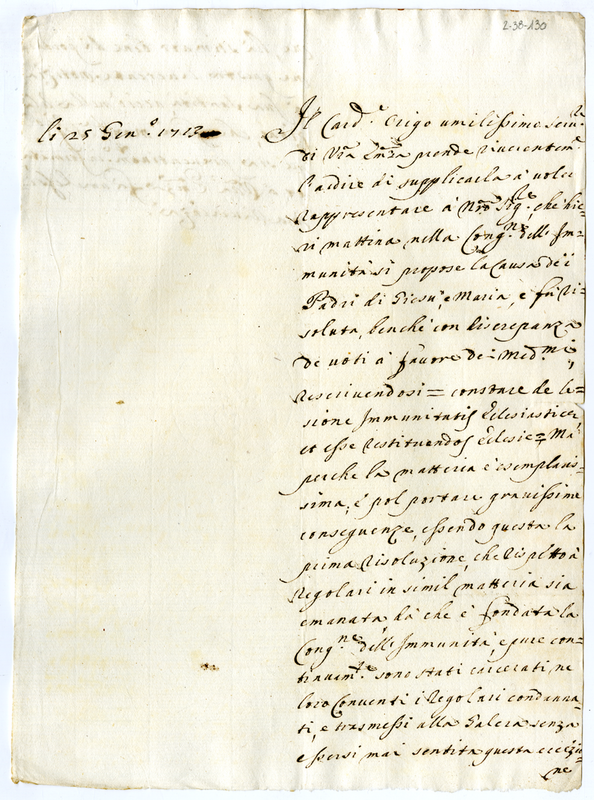 2-38-130
li 25 Gen.º 1713
Il Card.e Origo umilissimo Ser.re
di V̄ra Em̄za prende riverentem.te
l'ardire di supplicarla à voler
rappresentare à Nr̄o Sig.re, che hie-
ri mattina nella Cong.ne dell'Im-
munità si propose la Causa de' i
Padri di Giesù, e Maria, e fù ri-
soluta, benche con discrepanza
de voti à favore de' Med.mi,
rescrivendosi = constare de le-
sione Immunitatis Ecclesiasticae,
et esse restituendos Eclesie = Mà
perche la matteria è esemplaris-
sima, e pol portare gravissime
conseguenze, essendo questa la
prima risoluzione, che rispetto à
Regolari in simil matteria sia
emanata dà che è fondata la
Cong.ne dell'Immunità, e pure con-
tinuam.te sono stati carcerati ne
loro Conventi i Regolari condanna-
ti, e trasmessi alla Galera senza
essersi mai sentita questa eccezio-
ne